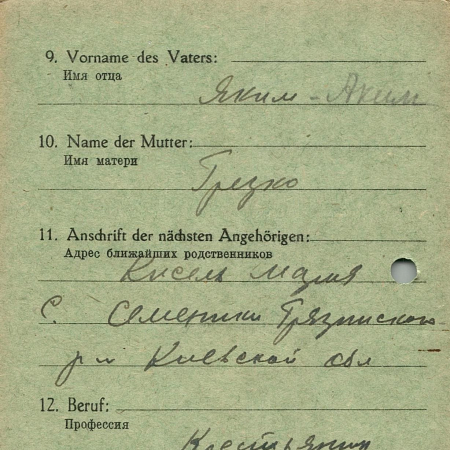 9. Vorname des Vaters:
Имя отца
Яким - Аким
10. Name der Mutter:
Имя матери
Грезко
11. Anschrift der nächsten Angehörigen:
Адрес ближайших родственников
Кисель Мария
С. Семеники
р-н Киевской обл
12. Beruf:
Профессия
Крестьянин